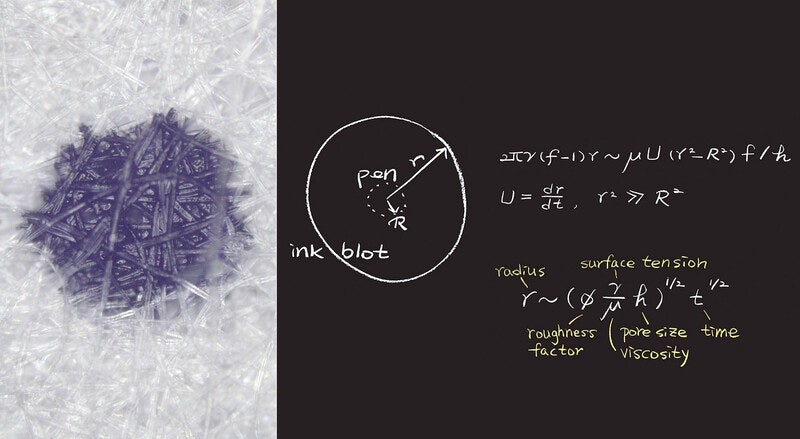 pen
r
R
ink blot
2πγ(f-1)r ~ μU(r²-R²)f/h
U = dr/dt, r² ≫ R²
radius
surface tension
r ~ (φ γ/μ h)^1/2 t^1/2
roughness factor
pore size
time
viscosity